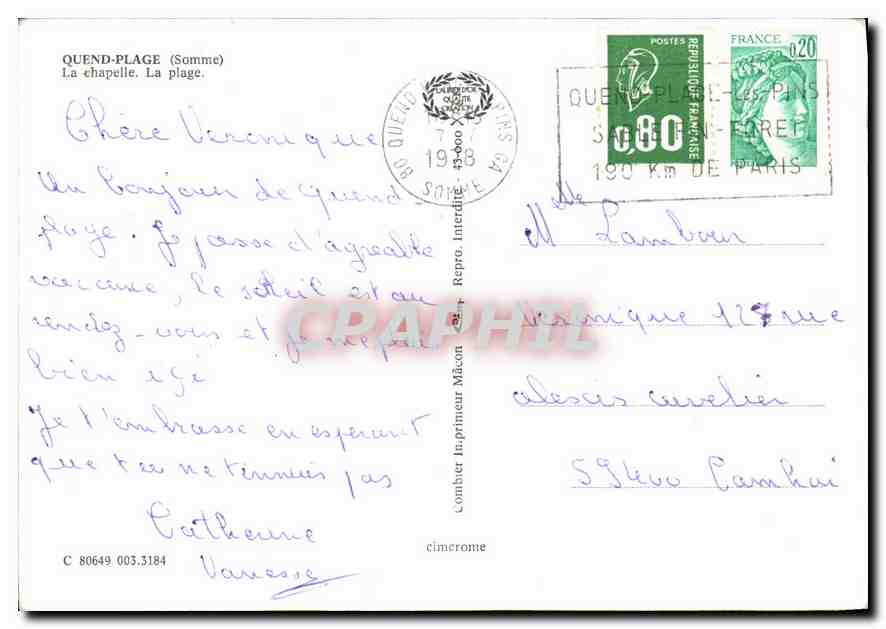 QUEND-PLAGE (Somme)
La chapelle. La plage.
Chère Veronique
Un bonjour de Quend
plage. Je passe d'agreable
vacance, le soleil est au
rendez-vous et je me plai
bien içi
Je t'embrasse en esperant
que tu ne t'ennuies pas
Catherine
Vanesse
C 80649 003.3184
80 QUEND PINS GA
1978
SOMME
Combier Imprimeur Mâcon Repro. Interdite - 43-000
cimcrome
POSTES
REPUBLIQUE FRANÇAISE
0,80
FRANCE
0,20
QUEND-PLAGE-Les-PINS
SABLE-PIN-FORET
190 Km DE PARIS
Mlle Lambour
Veronique 127 rue
alexis cuvelier
59400 Cambrai
CPAPHIL